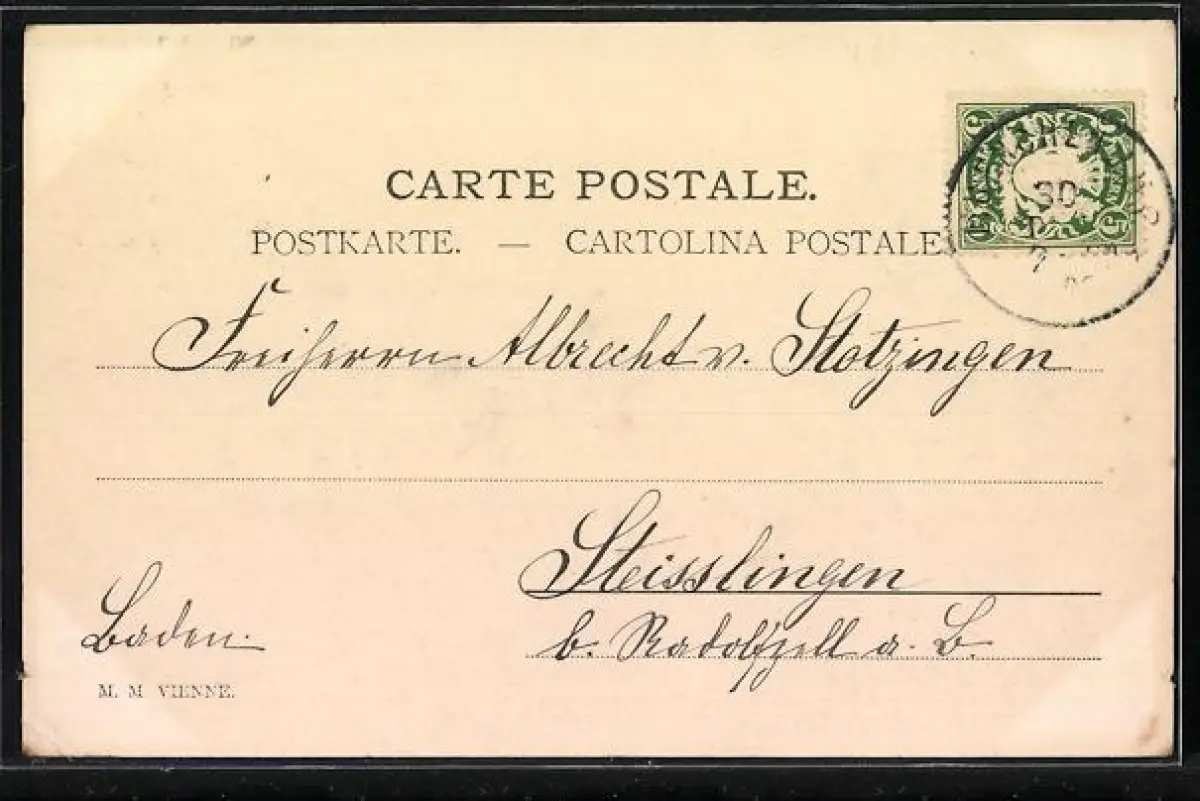 CARTE POSTALE.
POSTKARTE. — CARTOLINA POSTALE
5 5
30
Freiherrn Albrecht v. Stotzingen
Steisslingen
b. Radolfzell a. B.
Baden.
M. M. VIENNE.